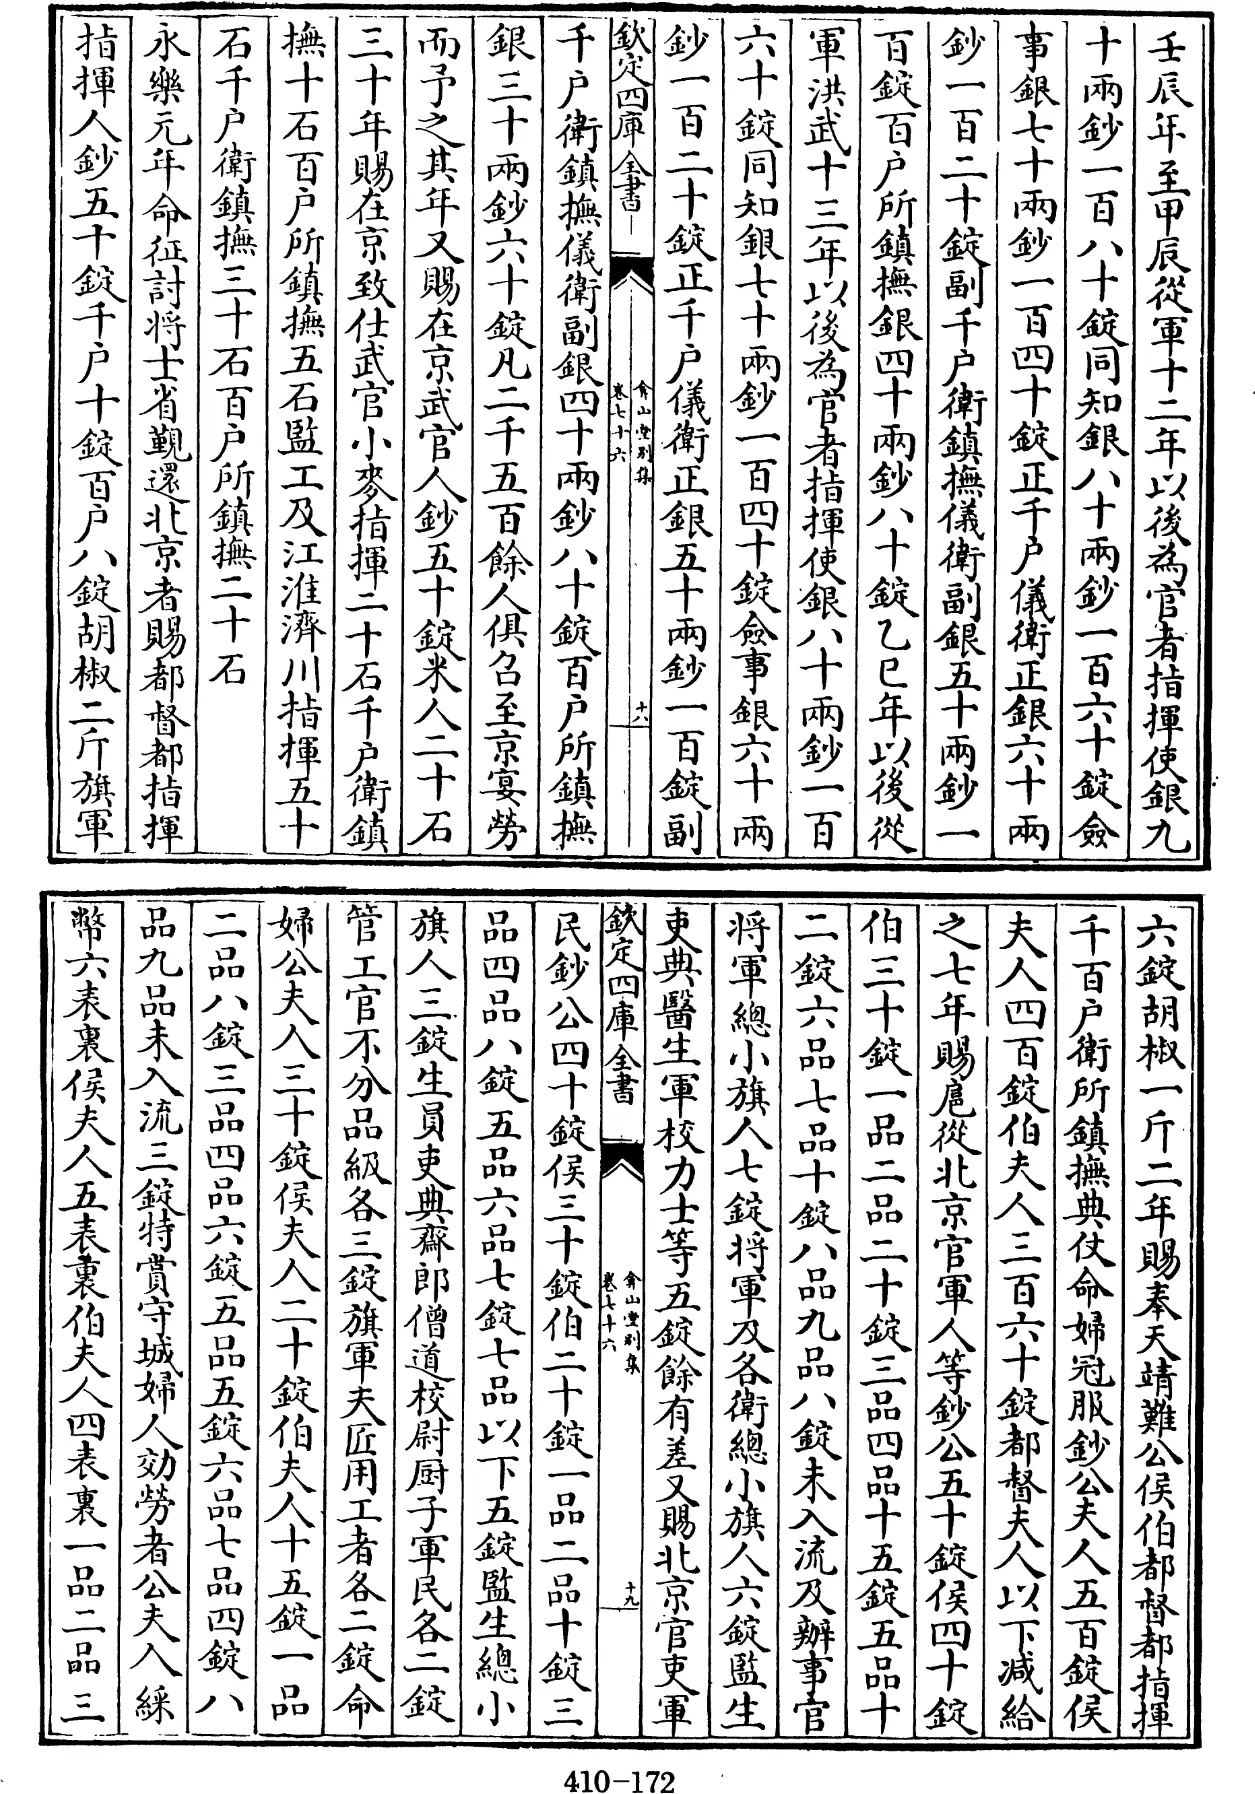 壬辰年至甲辰從軍十二年以後為官者指揮使銀九
十兩鈔一百八十錠同知銀八十兩鈔一百六十錠僉
事銀七十兩鈔一百四十錠正千户儀衛正銀六十兩
鈔一百二十錠副千户衛鎮撫儀衛副銀五十兩鈔一
百錠百户所鎮撫銀四十兩鈔八十錠乙巳年以後從
軍洪武十三年以後為官者指揮使銀八十兩鈔一百
六十錠同知銀七十兩鈔一百四十錠僉事銀六十兩
鈔一百二十錠正千户儀衛正銀五十兩鈔一百錠副
欽定四庫全書
弇山堂别集
卷七十六
十八
千户衛鎮撫儀衛副銀四十兩鈔八十錠百户所鎮撫
銀三十兩鈔六十錠凡二千五百餘人俱召至京宴勞
而予之其年又賜在京武官人鈔五十錠米人二十石
三十年賜在京致仕武官小麥指揮二十石千户衛鎮
撫十石百户所鎮撫五石監工及江淮濟川指揮五十
石千户衛鎮撫三十石百户所鎮撫二十石
永樂元年命征討將士省覲還北京者賜都督都指揮
指揮人鈔五十錠千户十錠百户八錠胡椒二斤旗軍
六錠胡椒一斤二年賜奉天靖難公侯伯都督都指揮
千百户衛所鎮撫典仗命婦冠服鈔公夫人五百錠侯
夫人四百錠伯夫人三百六十錠都督夫人以下減給
之七年賜扈從北京官軍人等鈔公五十錠侯四十錠
伯三十錠一品二品二十錠三品四品十五錠五品十
二錠六品七品十錠八品九品八錠未入流及辦事官
將軍總小旗人七錠將軍及各衛總小旗人六錠監生
吏典醫生軍校力士等五錠餘有差又賜北京官吏軍
欽定四庫全書
弇山堂别集
卷七十六
十九
民鈔公四十錠侯三十錠伯二十錠一品二品十錠三
品四品八錠五品六品七錠七品以下五錠監生總小
旗人三錠生員吏典齋郎僧道校尉厨子軍民各二錠
管工官不分品級各三錠旗軍夫匠用工者各二錠命
婦公夫人三十錠侯夫人二十錠伯夫人十五錠一品
二品八錠三品四品六錠五品五錠六品七品四錠八
品九品未入流三錠特賞守城婦人効勞者公夫人綵
幣六表裏侯夫人五表裏伯夫人四表裏一品二品三
410-172